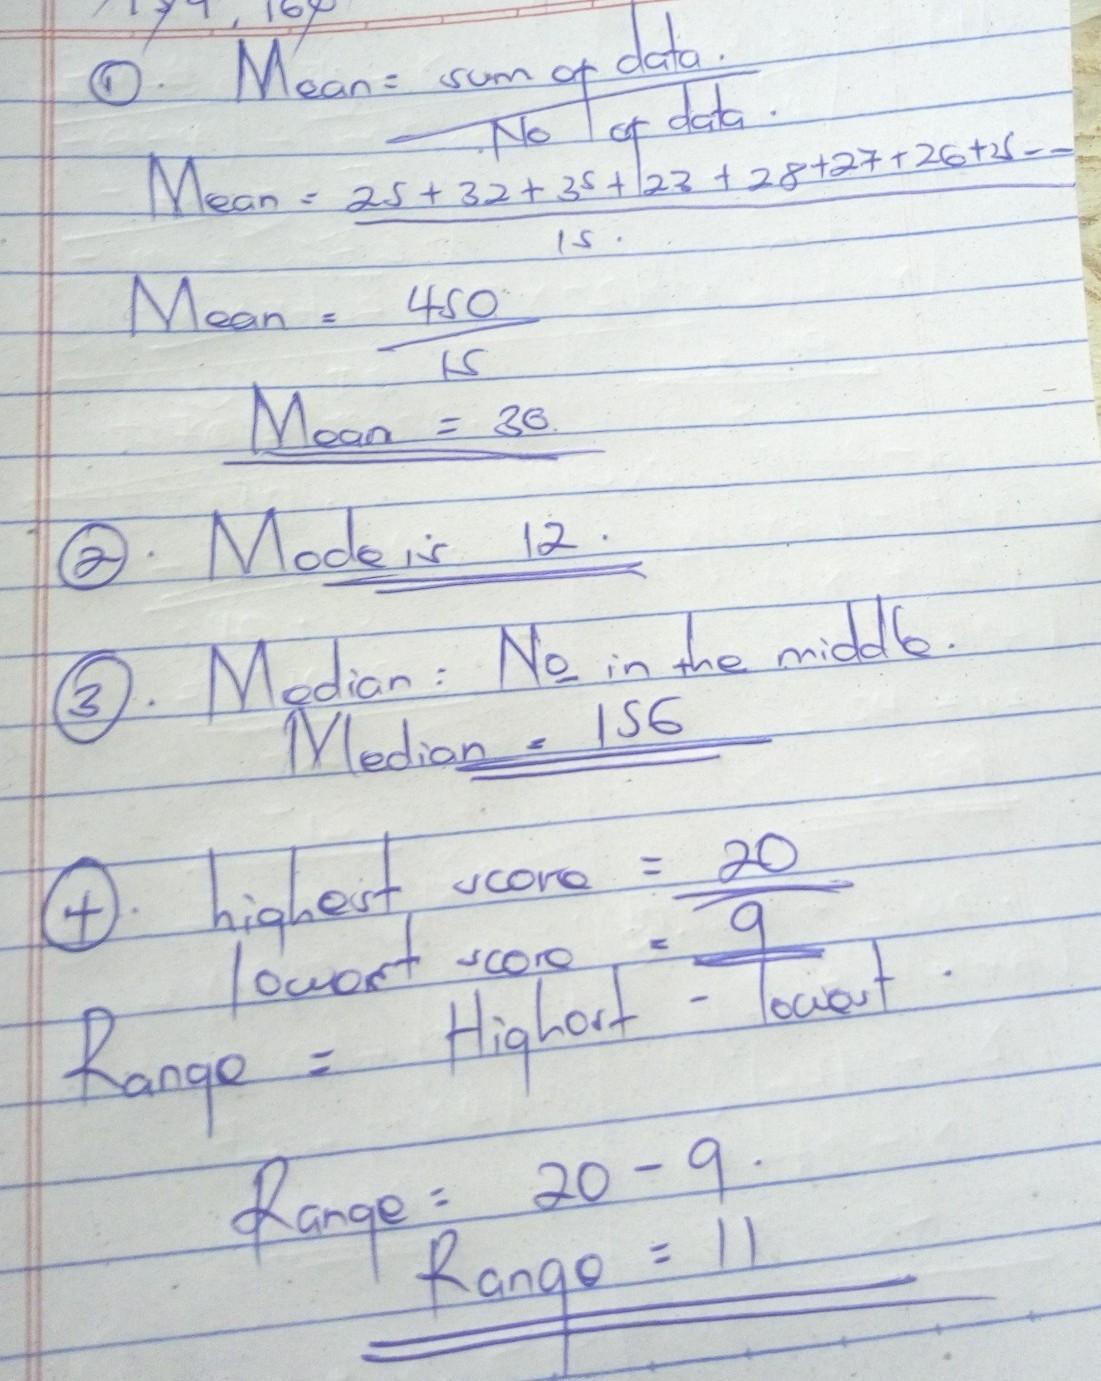 174, 164
①. Mean = sum of data.
No of data.
Mean = 25 + 32 + 35 + 23 + 28 + 27 + 26 + 25 - -
15.
Mean = 450
15
Mean = 30.
②. Mode is 12.
③. Median: No in the middle.
Median = 156
④. highest score = 20
lowest score = 9
Range = Highest - lowest.
Range = 20 - 9.
Range = 11